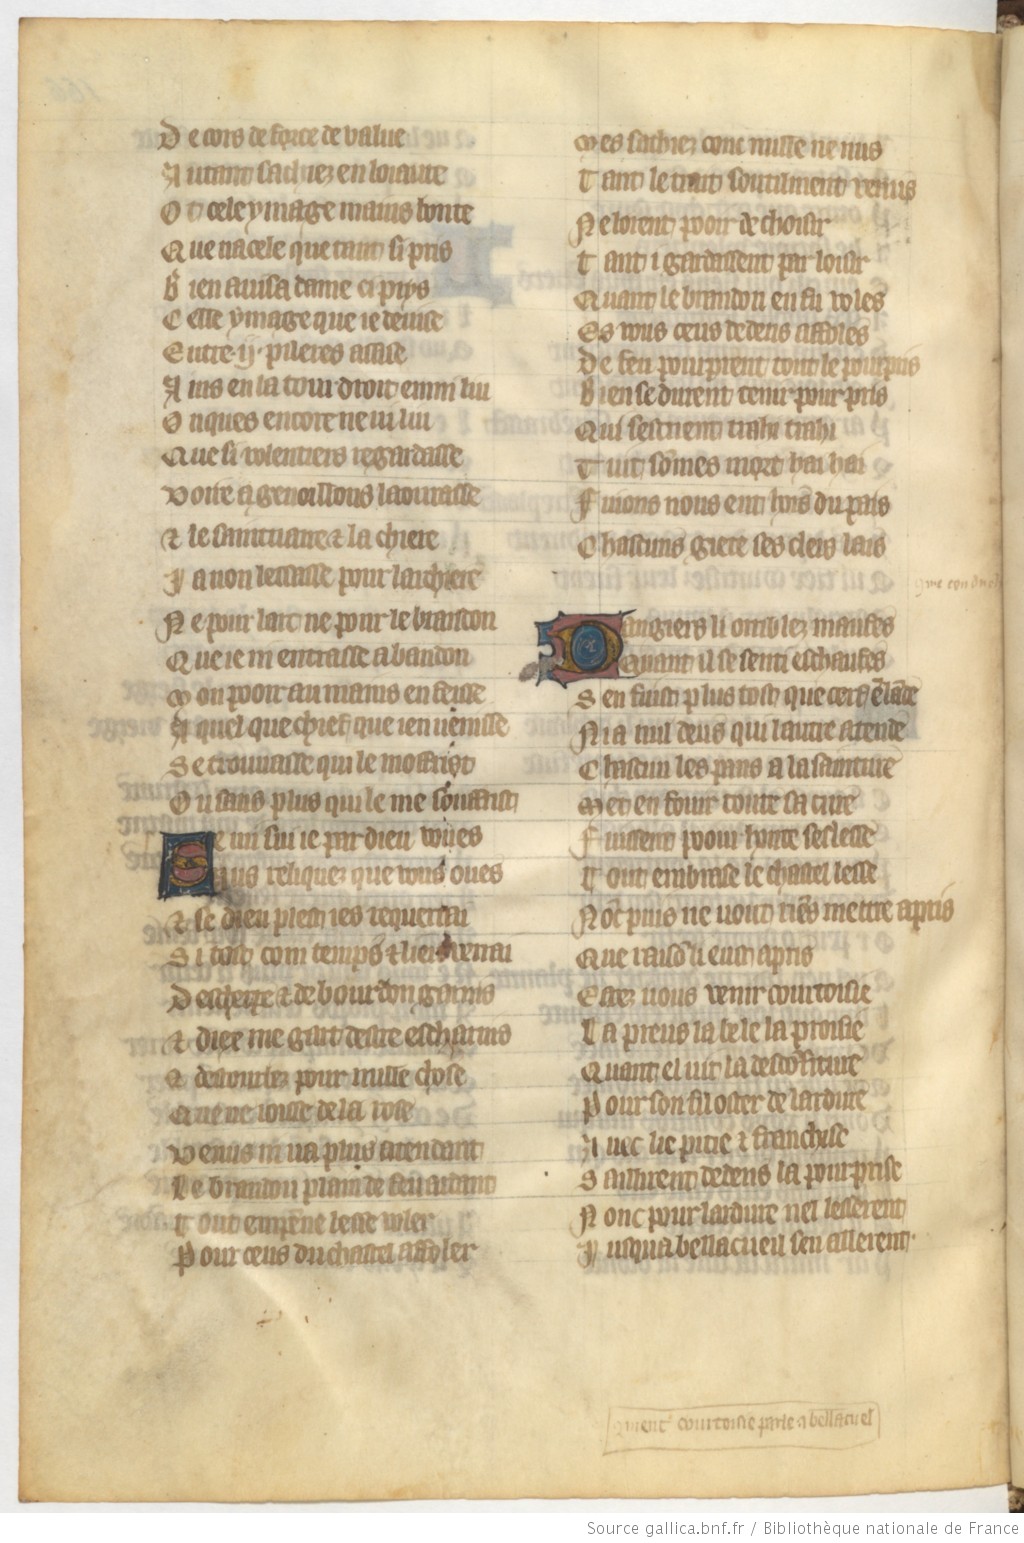 De cors de force de value
Autant sachiez en loiaute
Ot cele ymage mains bonte
Que nacele que tant si pris
Bien avisa dame cipris
Celle ymage que ie deuise
Entre .ij. pileres assise
Ains en la tour droit enmi liu
Onques encore ne vi liu
Que si volentiers regardasse
Voire agenoillons laourasse
& le saintuaire & la chiere
Ja non lessasse pour larchiere
Ne pour larc ne pour le brandon
Que ie ni entrasse a bandon
Mon pooir au mains en feisse
A quel que chief que ien venisse
Se trouuasse qui le moffrist
Ou sans plus qui le me souffrist
Se mi sui ie par dieu voues
Aus reliques que vous oues
& se dieu plest ies requerrai
Si tost com temps & lieu verrai
Descherpe & de bourdon garnis
& diex me gart destre escharnis
& destourbez pour nulle chose
Que ne ioisse de la rose
Venus ni va plus atendant
Le brandon plain de feu ardant
Tout empene lesse voler
Pour ceus du chastel affoler
Mes sachiez conc nulle ne nus
Tant le trait soutilment venus
Ne lorent pooir de choisir
Tant i gardassent par loisir
Quant le brandon en fu voles
Es vous ceus dedens affoles
De feu pourprent tout le pourpris
Bien se durent tenir pour pris
Qui sescrient trahi trahi
Tuit sommes mort hai hai
Fuions nous ent hors du pais
Chascuns giete ses cleis lais
que conduel
Dangiers li orribles maufes
Quant il se senti eschaufes
Sen fuist plus tost que cerf en lande
Ni a nul deus qui lautre atende
Chascun les pans a la sainture
Met en fouir toute sa cure
Fuissent poour honte seslesse
Tout embrase le chastel lesse
Nonc puis ne vout riens mettre a pris
Que raison li eust apris
Estez vous venir courtoisie
La preus la bele la proisie
Quant el vit la desconfiture
Pour son fil oster de lardure
Auec lie pitie & franchise
Saillirent dedens la pourprise
Nonc pour lardure nel lesserent
Jusqua bellacueil sen allerent.
comment courtoisie parle a bellacuel
Source gallica.bnf.fr / Bibliothèque nationale de France